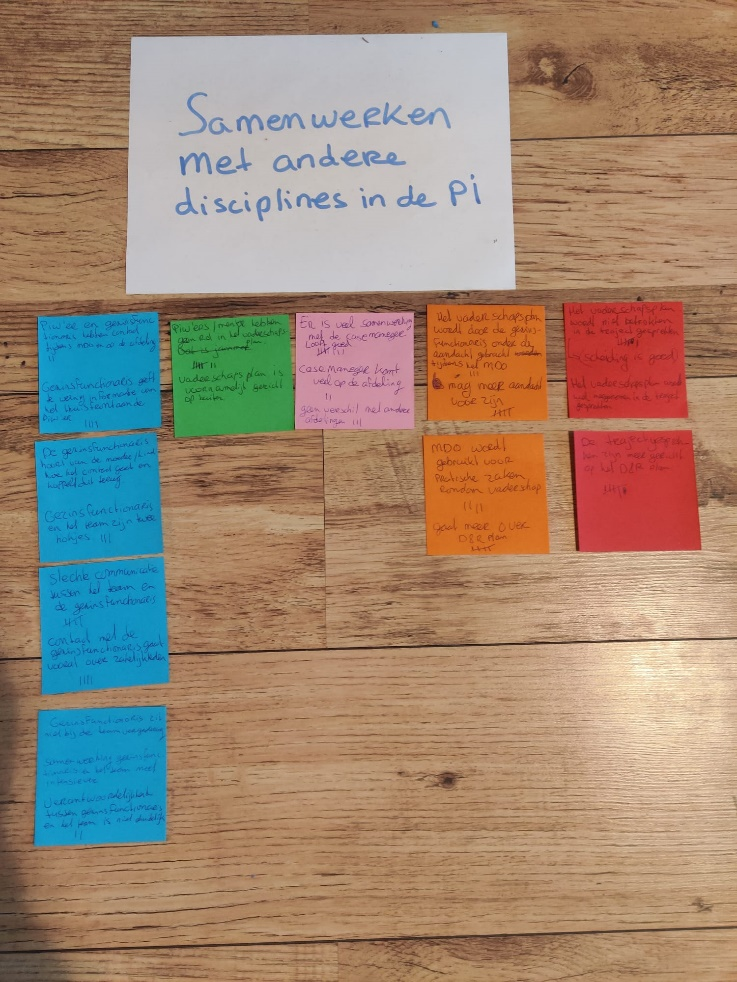 Samenwerken
met andere
disciplines in de Pi
Piw'er en gezinsfunc
hebben contact
op de afdeling
II
Gezinsfunctionaris geeft
te weinig informatie over
het
IIII
De gezinsfunctionaris
hoort van de moeder/kind
hoe het contact gaat en
koppelt dit terug
Gezinsfunctionaris
en het team zijn twee
hokjes. III
Slechte communicatie
tussen het team en
de gezinsfunctionaris
IIII
contact met de
gezinsfunctionaris gaat
vooral over zakelijkheden
IIII
Gezinsfunctionaris zit
niet bij de team vergadering
Samenwerking gezinsfunc
tionaris en het team moet
intensiever
Verantwoordelijkheid
tussen gezinsfunctionaris
en het team is niet duidelijk
II
Piw'ers / mentor hebben
geen rol in het vaderschaps-
plan.
vaderschapsplan is
voornamelijk gericht
op buiten
Er is veel samenwerking
met de casemanager
Loopt goed
casemanager komt
veel op de afdeling
II
geen verschil met andere
afdelingen III
Het vaderschapsplan
wordt door de gezins-
functionaris onder de
aandacht gebracht
tijdens het MDO
III
mag meer aandacht
voor zijn
MDO wordt
gebruikt voor
praktische zaken
rondom vaderschap
IIII
gaat meer over
D&R plan
Het vaderschapsplan
wordt niet betrokken
in de traject gesprekken
(scheiding is goed)
Het vaderschapsplan wordt
De trajectgesprek
ken zijn meer gericht
op het D&R plan